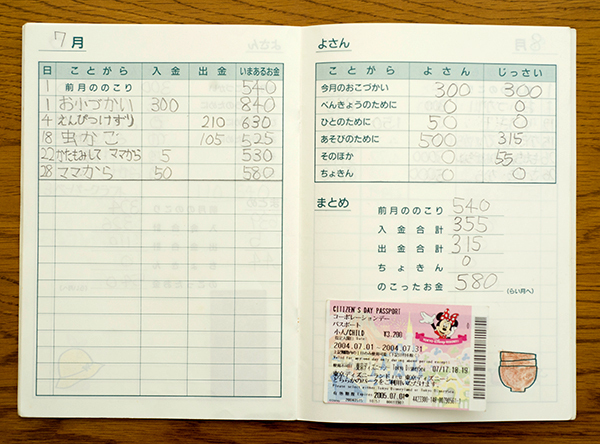 7月
日 ことがら 入金 出金 いまあるお金
1 前月ののこり 540
1 お小づかい 300 840
4 えんぴつけずり 210 630
18 虫かご 105 525
22 かたもみして ママから 5 530
28 ママから 50 580
よさん
ことがら よさん じっさい
今月のおこづかい 300 300
べんきょうのために 0 0
ひとのために 50 0
あそびのために 500 315
そのほか 0 55
ちょきん 0 0
まとめ
前月ののこり 540
入金合計 355
出金合計 315
ちょきん 0
のこったお金 580 (らい月へ)
CITIZEN'S DAY PASSPORT
コーポレーションデー
パスポート
小人/CHILD ¥3,200
2004.07.01-2004.07.31
07/17.18.19
東京ディズニーランドか 東京ディズニーシー
どちらかのパークをご利用いただけます
2005.07.01